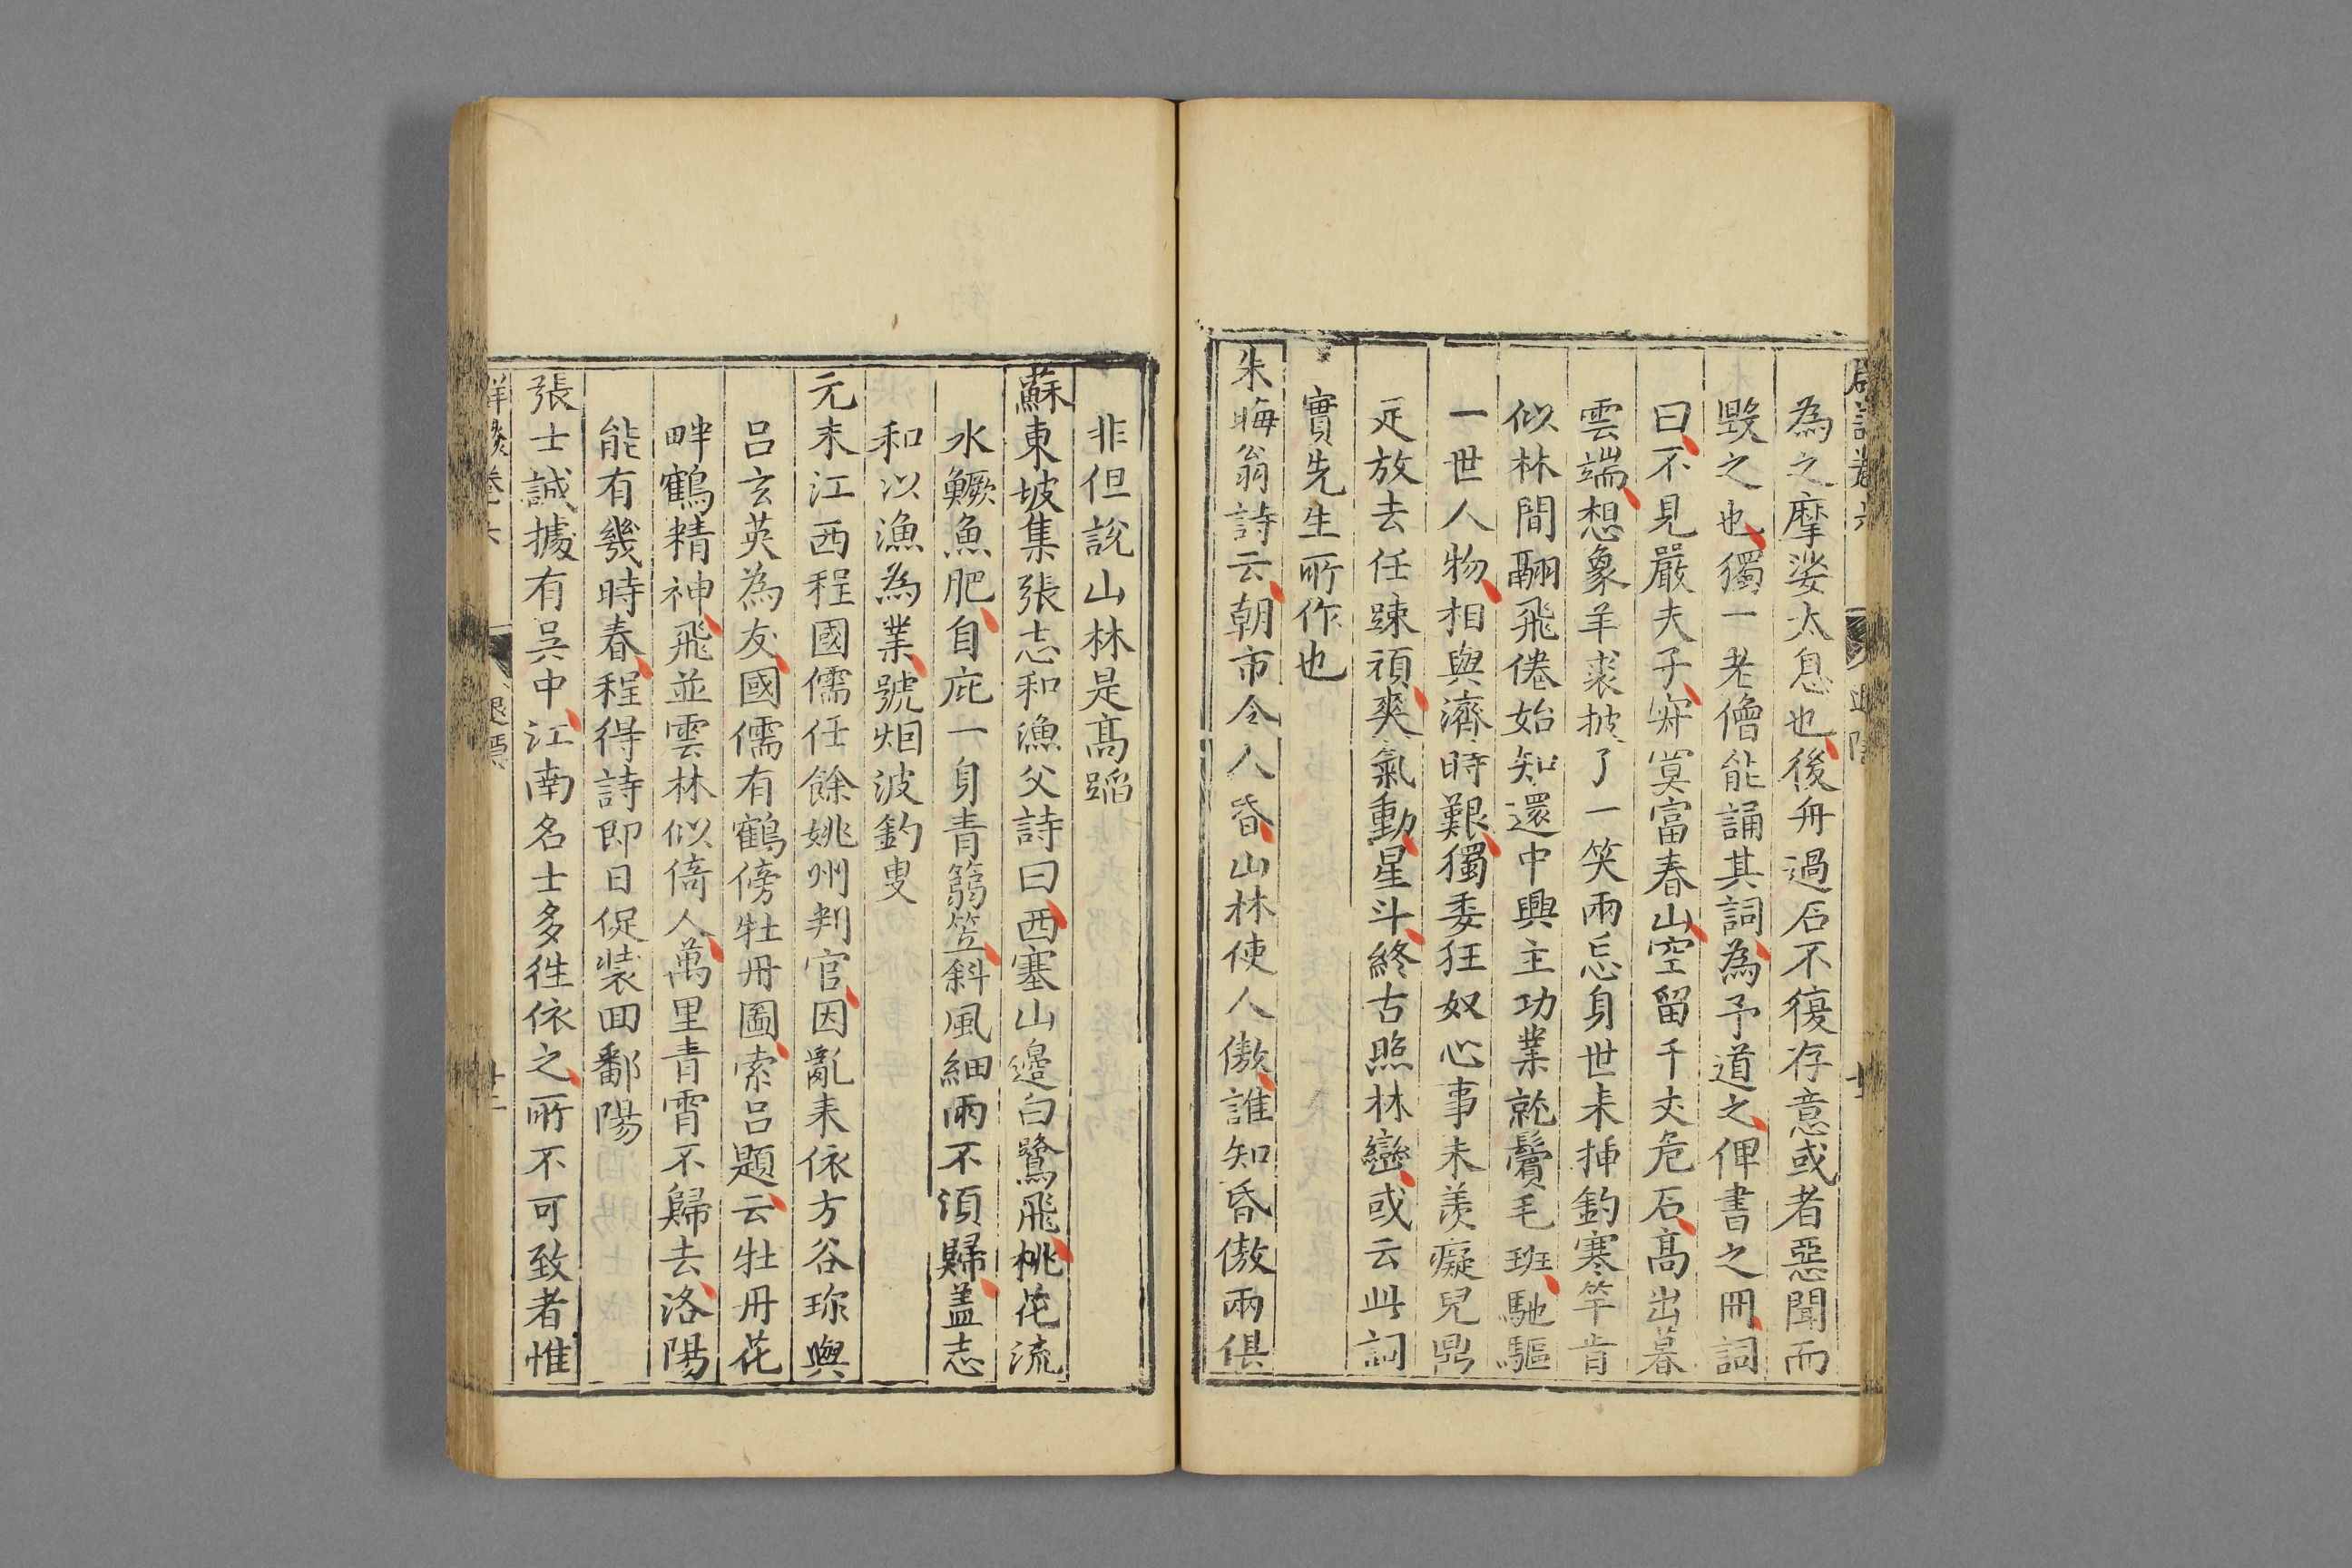 為之摩挲太息也後舟過石不復存意或者惡聞而
毀之也獨一老僧能誦其詞為予道之俾書之冊詞
曰不見嚴夫子寂寞富春山空留千丈危石高出暮
雲端想象羊裘披了一笑兩忘身世來揷釣寒竿肯
似林間翮飛倦始知還中興主功業就鬢毛班馳驅
一世人物相與濟時艱獨委狂奴心事未羡癡兒鼎
足放去任疎頑爽氣動星斗終古照林巒或云此詞
實先生所作也
朱晦翁詩云朝市令人昏山林使人傲誰知昏傲兩俱
非但說山林是高蹈
蘇東坡集張志和漁父詩曰西塞山邉白鷺飛桃花流
水鱖魚肥自庇一身青篛笠斜風細雨不須歸盖志
和以漁為業號烟波釣叟
元末江西程國儒任餘姚州判官因亂来依方谷珍與
呂玄英為友國儒有鶴傍牡丹圖索呂題云牡丹花
畔鶴精神飛並雲林似倚人萬里青霄不歸去洛陽
能有幾時春程得詩即日促装囬鄱陽
張士誠據有吳中江南名士多徃依之所不可致者惟